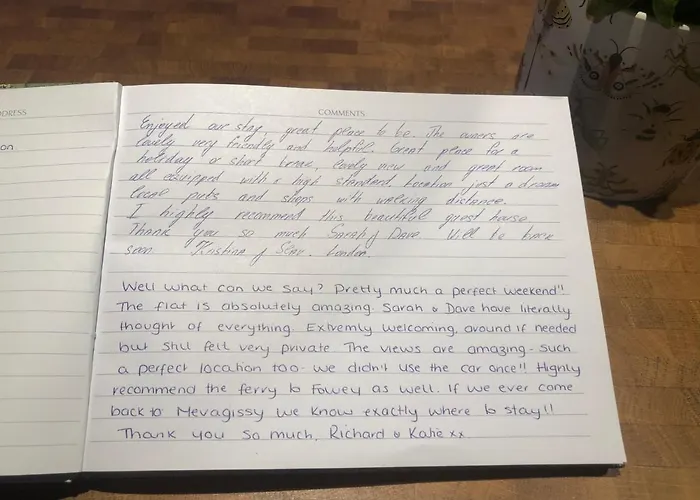 DDRESS
on
COMMENTS
Enjoyed our stay, great place to be. The owners are
lovely very friendly and helpful. Great place for a
holiday or short break, lovely view and great room
all equipped with a high standard. Location just a dream
local pubs and shops with walking distance.
I highly recommend this beautiful guest house
Thank you so much Sarah & Dave. Will be back
soon Kristina London.
Well what can we say? Pretty much a perfect weekend!!
The flat is absolutely amazing. Sarah & Dave have literally
thought of everything. Extremly welcoming, around if needed
but still felt very private. The views are amazing - such
a perfect location too - we didn't use the car once!! Highly
recommend the ferry to Fowey as well. If we ever come
back to Mevagissy we know exactly where to stay!!
Thank you so much, Richard & Katie xx